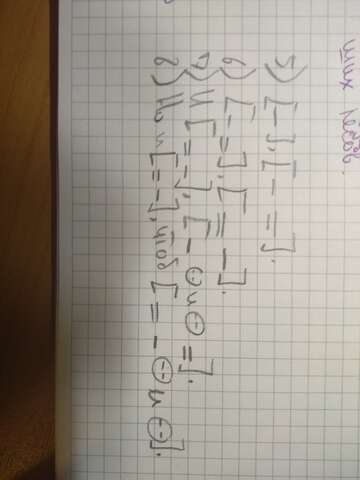 ших лесов.
5) [-], [- =].
6) [- =], [= -].
7) И [= -], [- ⊖ и ⊖ =].
8) Но и [= -], чтоб [= - ⊖ и ⊖].